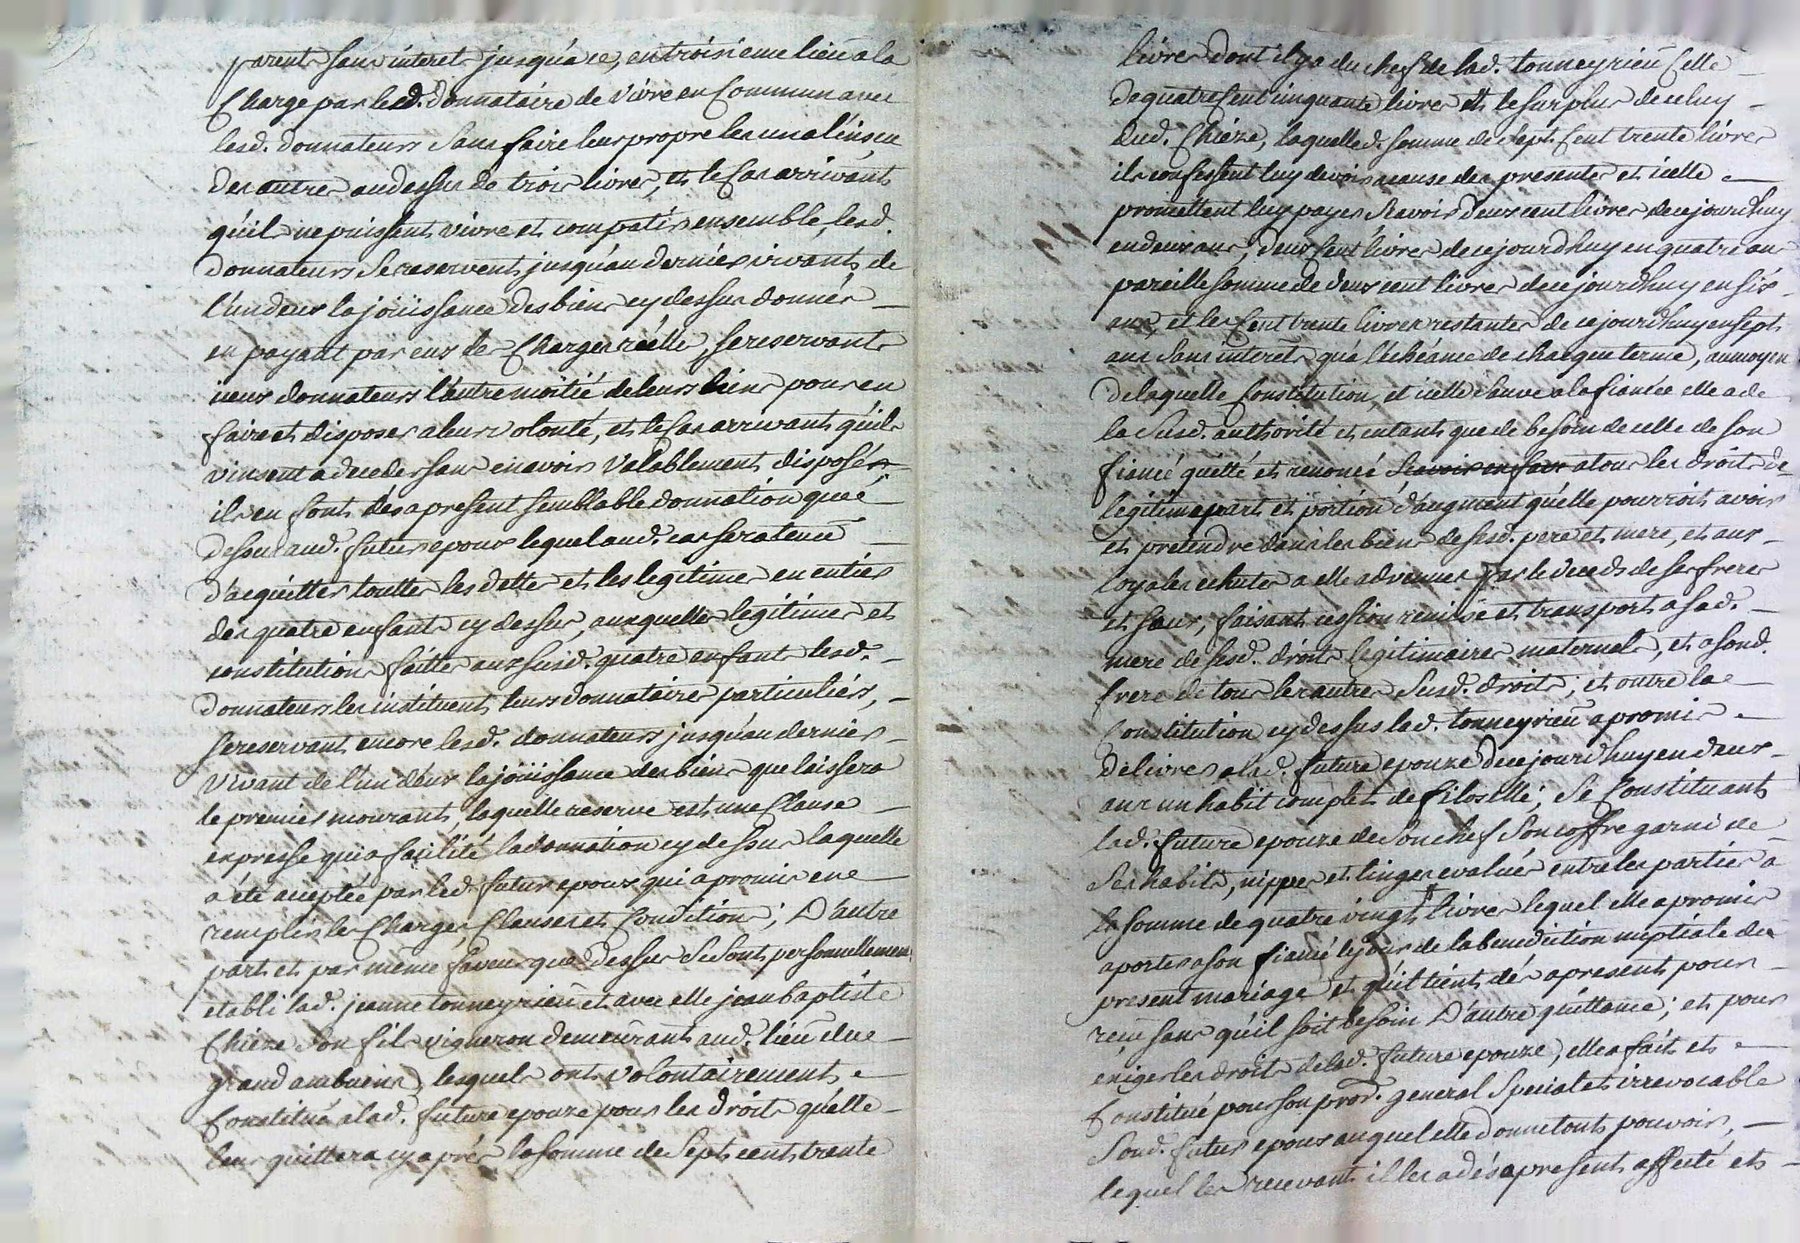 parents sans interet jusqu'a ce, en troisieme lieu a la
Charge par led. donnataire de vivre en Commun avec
lesd. donnateurs sans faire leur propre les uns a l'insçu
des autre au dessus de trois livres, et le Cas arrivant
qu'ils ne puissent vivre et compatir ensemble, lesd.
donnateurs se reservent jusqu'au dernier vivant de
l'un deux la joüissance des biens cy dessus donnés
en payant par eux les Charges réelle se reservants
iceux donnateurs l'autre moitié de leurs biens pour en
faire et disposer a leurs volonté, et le Cas arrivant qu'ils
vinsent a deceder sans en avoir valablement disposés
ils en font dés a present semblable donnation que
dessus aud. futur epoux lequel aud. cas sera tenu
d'acquitter toutte les dette et les legitimes en entier
des quatre enfants cy dessus, auxquelles legitimes et
constitution faitte aux susd. quatre enfants lesd.
donnateurs les instituent leurs donnataire particuliers,
se reservant encore lesd. donnateurs jusqu'au dernier
vivant de l'un d'eux la joüissance des biens que laissera
le premier mourant, laquelle reserve est une Clause
expresse qui a facilité la donnation cy dessus laquelle
a été aceptée par led. futur epoux qui a promis en
remplir les Charges, Clauses et Condition; D'autre
part et par meme faveur que dessus se sont personnellement
etabli lad. jeanne tonneyrieu et avec elle jean baptiste
Chieze son fils vigneron demeurant aud. lieu du
grand ambuens, lesquels ont volontairement
Constitué a lad. future epouze pour les droits qu'elle
leur quittera cy aprés la somme de Sept cents trente
livres dont il y a du chef de lad. tonneyrieu Celle
de quatre Cent cinquante livres et le surplus de celuy
dud. Chieze, laquelled. somme de sept Cent trente livres
ils confessent luy devoir acause des presentes et icelle
promettent luy payer scavoir deux cent livres de ce jourdhuy
en deux ans, deux Cent livres de ce jourdhuy en quatre ans
pareille somme de deux cent livres de ce jourdhuy en six
ans, et les Cent trente livres restantes de ce jourdhuy en sept
ans sans interets qu'a l'echéance de chacque terme, au moyen
de laquelle Constitution, et icelle sauve a la fiancée elle a de
la susd. authorité et entant que de besoin de celle de son
fiancé quitté et renoncé a tous les droits de
legitime part et portion d'augment qu'elle pourroit avoir
et pretendre dans les biens de sesd. pere et mere, et aux
loyales echutes a elle advenues par le deceds de ses freres
et sœur, faisant cession remise et transport a sad.
mere de sesd. droits legitimaire maternels, et a sond.
frere de tous les autres susd. droits; et outre la
Constitution cy dessus lad. tonneyrieu a promis
delivrer a lad. future epouze de ce jourdhuy en deux
ans un habit complet de filoselle; se Constituant
lad. future epouze de son chef son coffre garni de
ses habits, nippes et linges evalués entre les parties a
la somme de quatre vingt livres lequel elle a promis
aporter a son fiancé le jour de la benediction nuptiale du
present mariage et qu'il tient dés a present pour
recu sans qu'il soit besoin D'autre quittance; et pour
exiger les droits de lad. future epouze, elle a fait et
Constitué pour son prod. general special et irrevocable
sond. futur epoux auquel elle donne touts pouvoirs,
lequel les recevant il les a dés a present affecté et